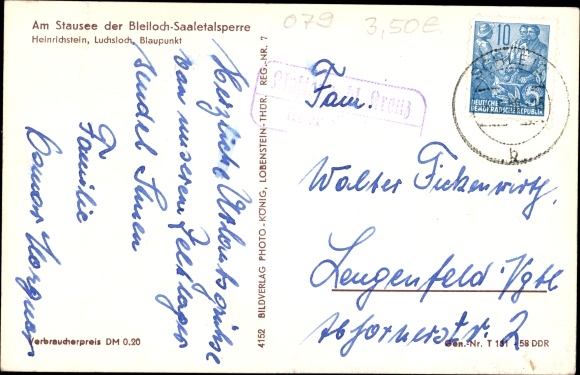 Am Stausee der Bleiloch-Saaletalsperre
Heinrichstein, Luchsloch, Blaupunkt
079 3,50€
Herzliche Urlaubsgrüsse
von unserem Zeltlager
sendet Ihnen
Familie
Verbraucherpreis DM 0.20
4152 BILDVERLAG PHOTO-KÖNIG, LOBENSTEIN-THÜR. REG.-NR. 7
10
DEUTSCHE
DEMOKRATISCHE REPUBLIK
5
b
Kreuz
Fam.
Walter Fickenwirth
Lengenfeld Vgtl
Str. 2
Gen.-Nr. T 181 - 58 DDR